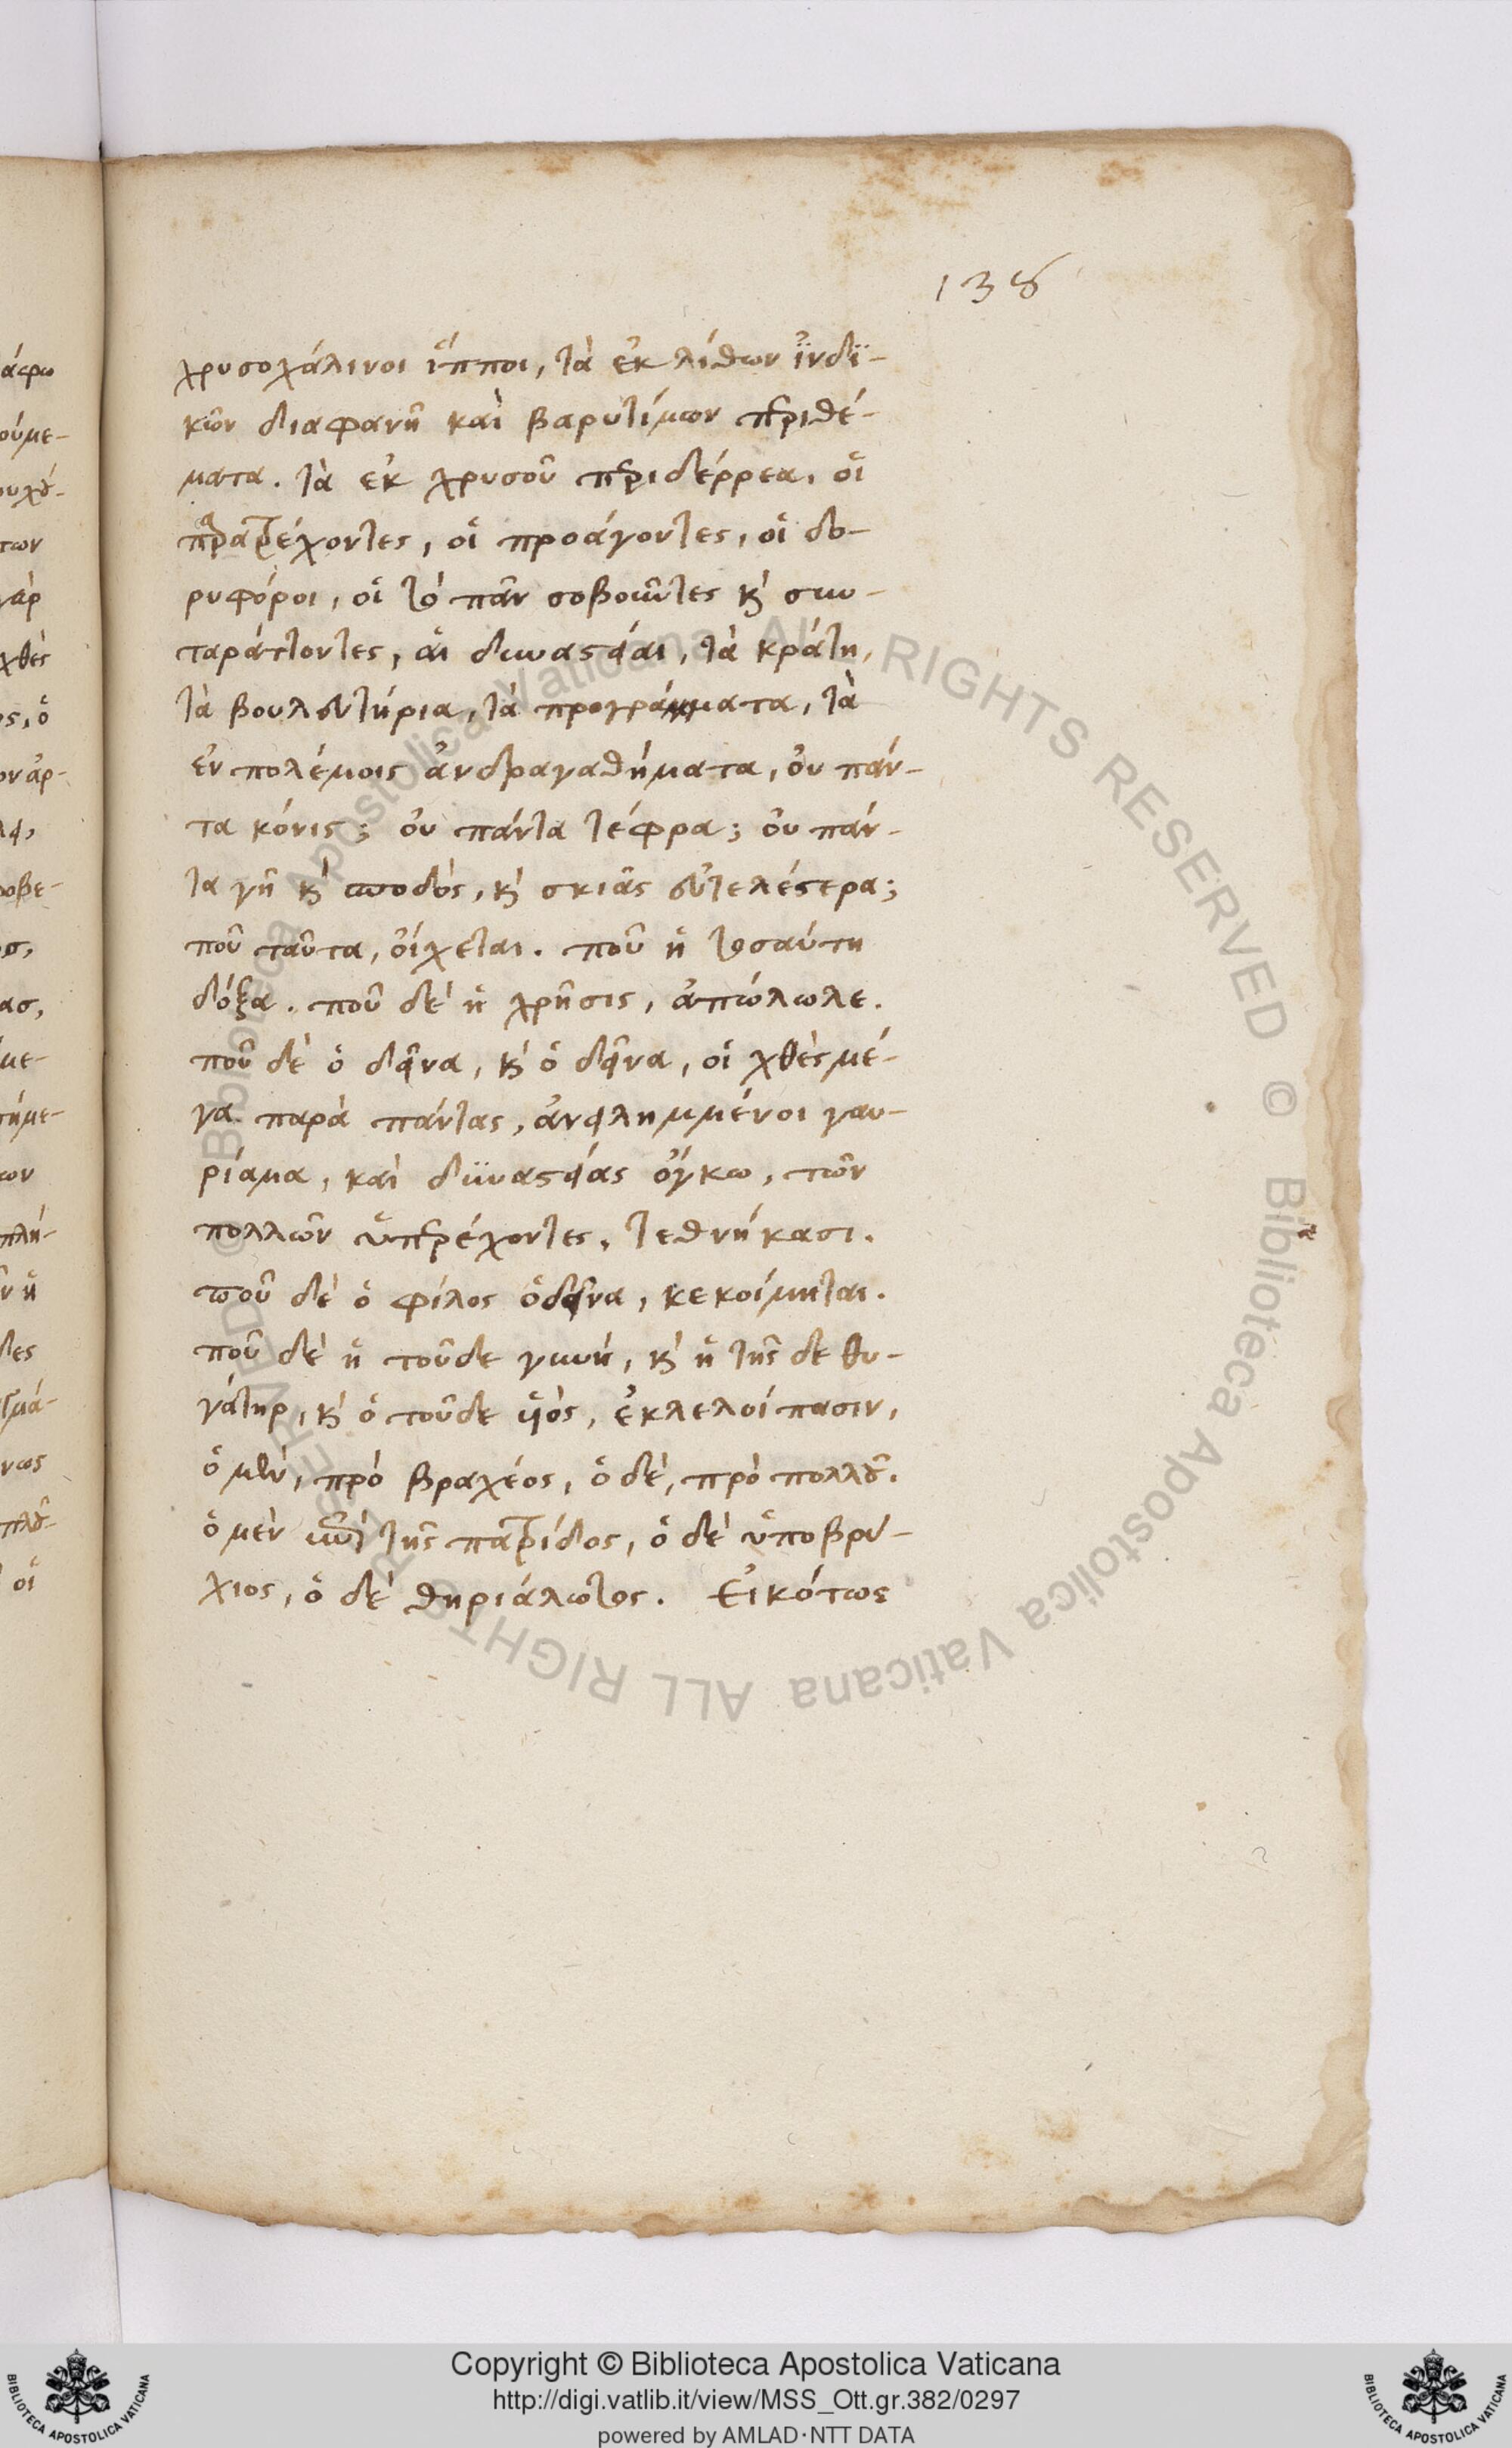 138
χρυσοχάλινοι ἵπποι, τὰ ἐκ λίθων ἰνδι-
κῶν διαφανῆ καὶ βαρυτίμων περιθέ-
ματα. τὰ ἐκ χρυσοῦ περιδέρρεα, οἱ
παρατρέχοντες, οἱ προάγοντες, οἱ δο-
ρυφόροι, οἱ τὸ πᾶν σοβοῦντες κὶ συν-
ταράττοντες, αἱ δυναστείαι, τὰ κράτη,
τὰ βουλευτήρια, τὰ προγράμματα, τὰ
ἐν πολέμοις ἀνδραγαθήματα, οὐ πάν-
τα κόνις; οὐ πάντα τέφρα; οὐ πάν-
τα γῆ κὶ σποδὸς, κὶ σκιᾶς εὐτελέστερα;
ποῦ ταῦτα, οἴχεται. ποῦ ἡ τοσαύτη
δόξα. ποῦ δὲ ἡ χρῆσις, ἀπώλωλε.
ποῦ δὲ ὁ δεῖνα, κὶ ὁ δεῖνα, οἱ χθὲς μέ-
γα παρὰ πάντας, ἀνειλημμένοι γαυ-
ρίαμα, καὶ δυναστείας ὄγκω, τῶν
πολλῶν ὑπερέχοντες, τεθνήκασι.
ποῦ δὲ ὁ φίλος ὁ δεῖνα, κεκοίμηται.
ποῦ δὲ ἡ τοῦδε γυνή, κὶ ἡ τῆς δε θυ-
γάτηρ, κὶ ὁ τοῦδε υἱὸς, ἐκλελοίπασιν,
ὁ μὲν, πρὸ βραχέος, ὁ δὲ, πρὸ πολλοῦ.
ὁ μὲν ἐπὶ τῆς πατρίδος, ὁ δὲ ὑποβρύ-
χιος, ὁ δὲ θηριάλωτος. Εἰκότως
Copyright © Biblioteca Apostolica Vaticana
http://digi.vatlib.it/view/MSS_Ott.gr.382/0297
powered by AMLAD·NTT DATA